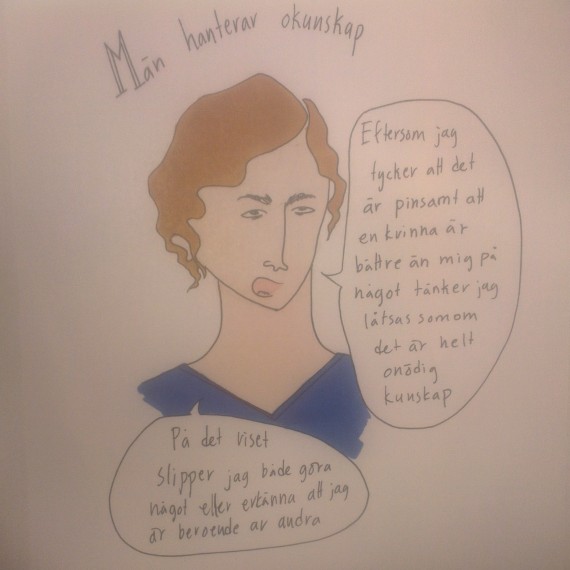 Män hanterar okunskap
Eftersom jag
tycker att det
är pinsamt att
en kvinna är
bättre än mig på
något tänker jag
låtsas somom
det är helt
onödig
kunskap
På det viset
slipper jag både göra
något eller erkänna att jag
är beroende av andra